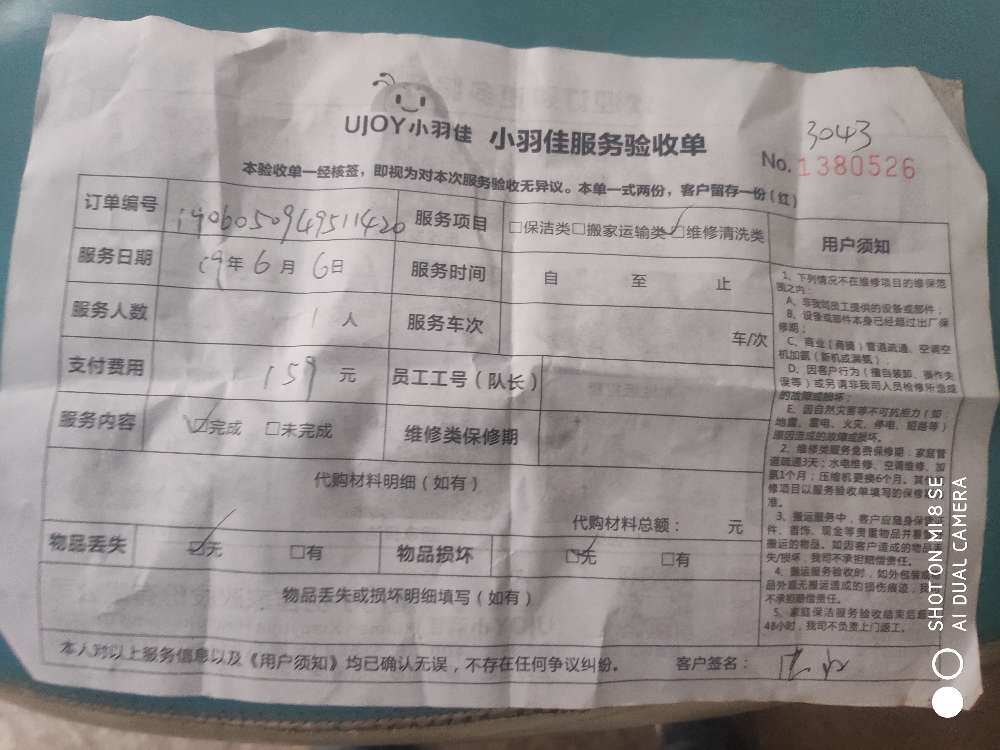 UJOY小羽佳 小羽佳服务验收单
3043
No. 1380526
本验收单一经核签，即视为对本次服务验收无异议。本单一式两份，客户留存一份（红）
订单编号 1906050949511420 服务项目 □保洁类□搬家运输类☑维修清洗类
服务日期 19年6月6日 服务时间 自 至 止
服务人数 1人 服务车次 车/次
支付费用 159元 员工工号（队长）
服务内容 ☑完成 □未完成 维修类保修期
代购材料明细（如有）
代购材料总额： 元
物品丢失 ☑无 □有 物品损坏 ☑无 □有
物品丢失或损坏明细填写（如有）
本人对以上服务信息以及《用户须知》均已确认无误，不存在任何争议纠纷。 客户签名：
用户须知
1、下列情况不在维修项目的维保范
围之内：
A、非我司员工提供的设备或部件；
B、设备或部件本身已经超过出厂保
修期；
C、商业（商铺）管道疏通、空调空
机加氟（新机或漏氟）；
D、因客户行为（擅自装卸、操作失
误等）或另请非我司人员检修所造成
的故障或损坏；
E、因自然灾害等不可抗能力（如：
地震、雷电、火灾、停电、短路等）
原因造成的故障或损坏。
2、维修类服务免费保修期：家庭管
道疏通3天；水电维修、空调维修、加
氟1个月；压缩机更换6个月。其
修项目以服务验收单填写的保修
准。
3、搬运服务中，客户应随身保
件、首饰、现金等贵重物品并
搬运的物品。如因客户造成的物品
失/损坏，我司不承担赔偿责任。
4、搬运服务验收时，如外包装
品外观无搬运造成的损伤痕迹，我
不承担赔偿责任。
5、家庭保洁服务验收结束后超
48小时，我司不负责上门返工。
SHOT ON MI 8 SE
AI DUAL CAMERA